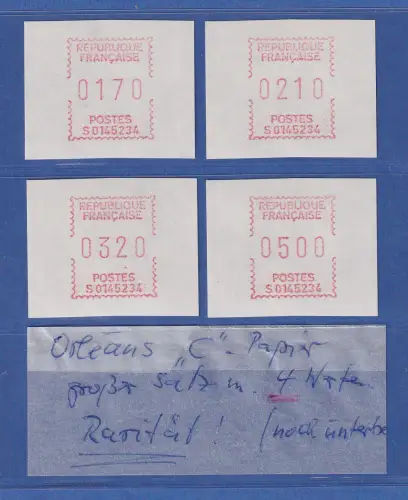 REPUBLIQUE
FRANÇAISE
0170
POSTES
S 0145234
REPUBLIQUE
FRANÇAISE
0210
POSTES
S 0145234
REPUBLIQUE
FRANÇAISE
0320
POSTES
S 0145234
REPUBLIQUE
FRANÇAISE
0500
POSTES
S 0145234
Orléans "C"-Papier
großer Satz m. 4 Werten
Rarität! (noch